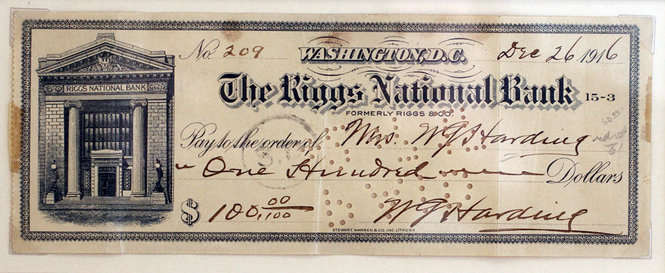 No. 209 WASHINGTON, D.C. Dec 26 1916
RIGGS NATIONAL BANK
The Riggs National Bank 15-3
FORMERLY RIGGS & CO.
Pay to the order of Mrs. WG Harding
One Hundred Dollars
$ 100.00/100 WG Harding
STEWART, WARREN & CO. INC. LITHO. N.Y.